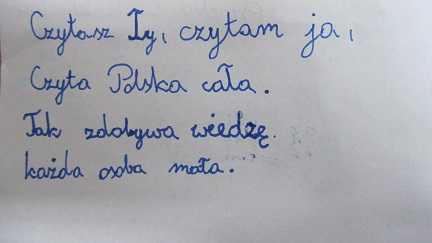 Czytasz Ty, czytam ja,
Czyta Polska cała.
Tak zdobywa wiedzę.
każda osoba mała.